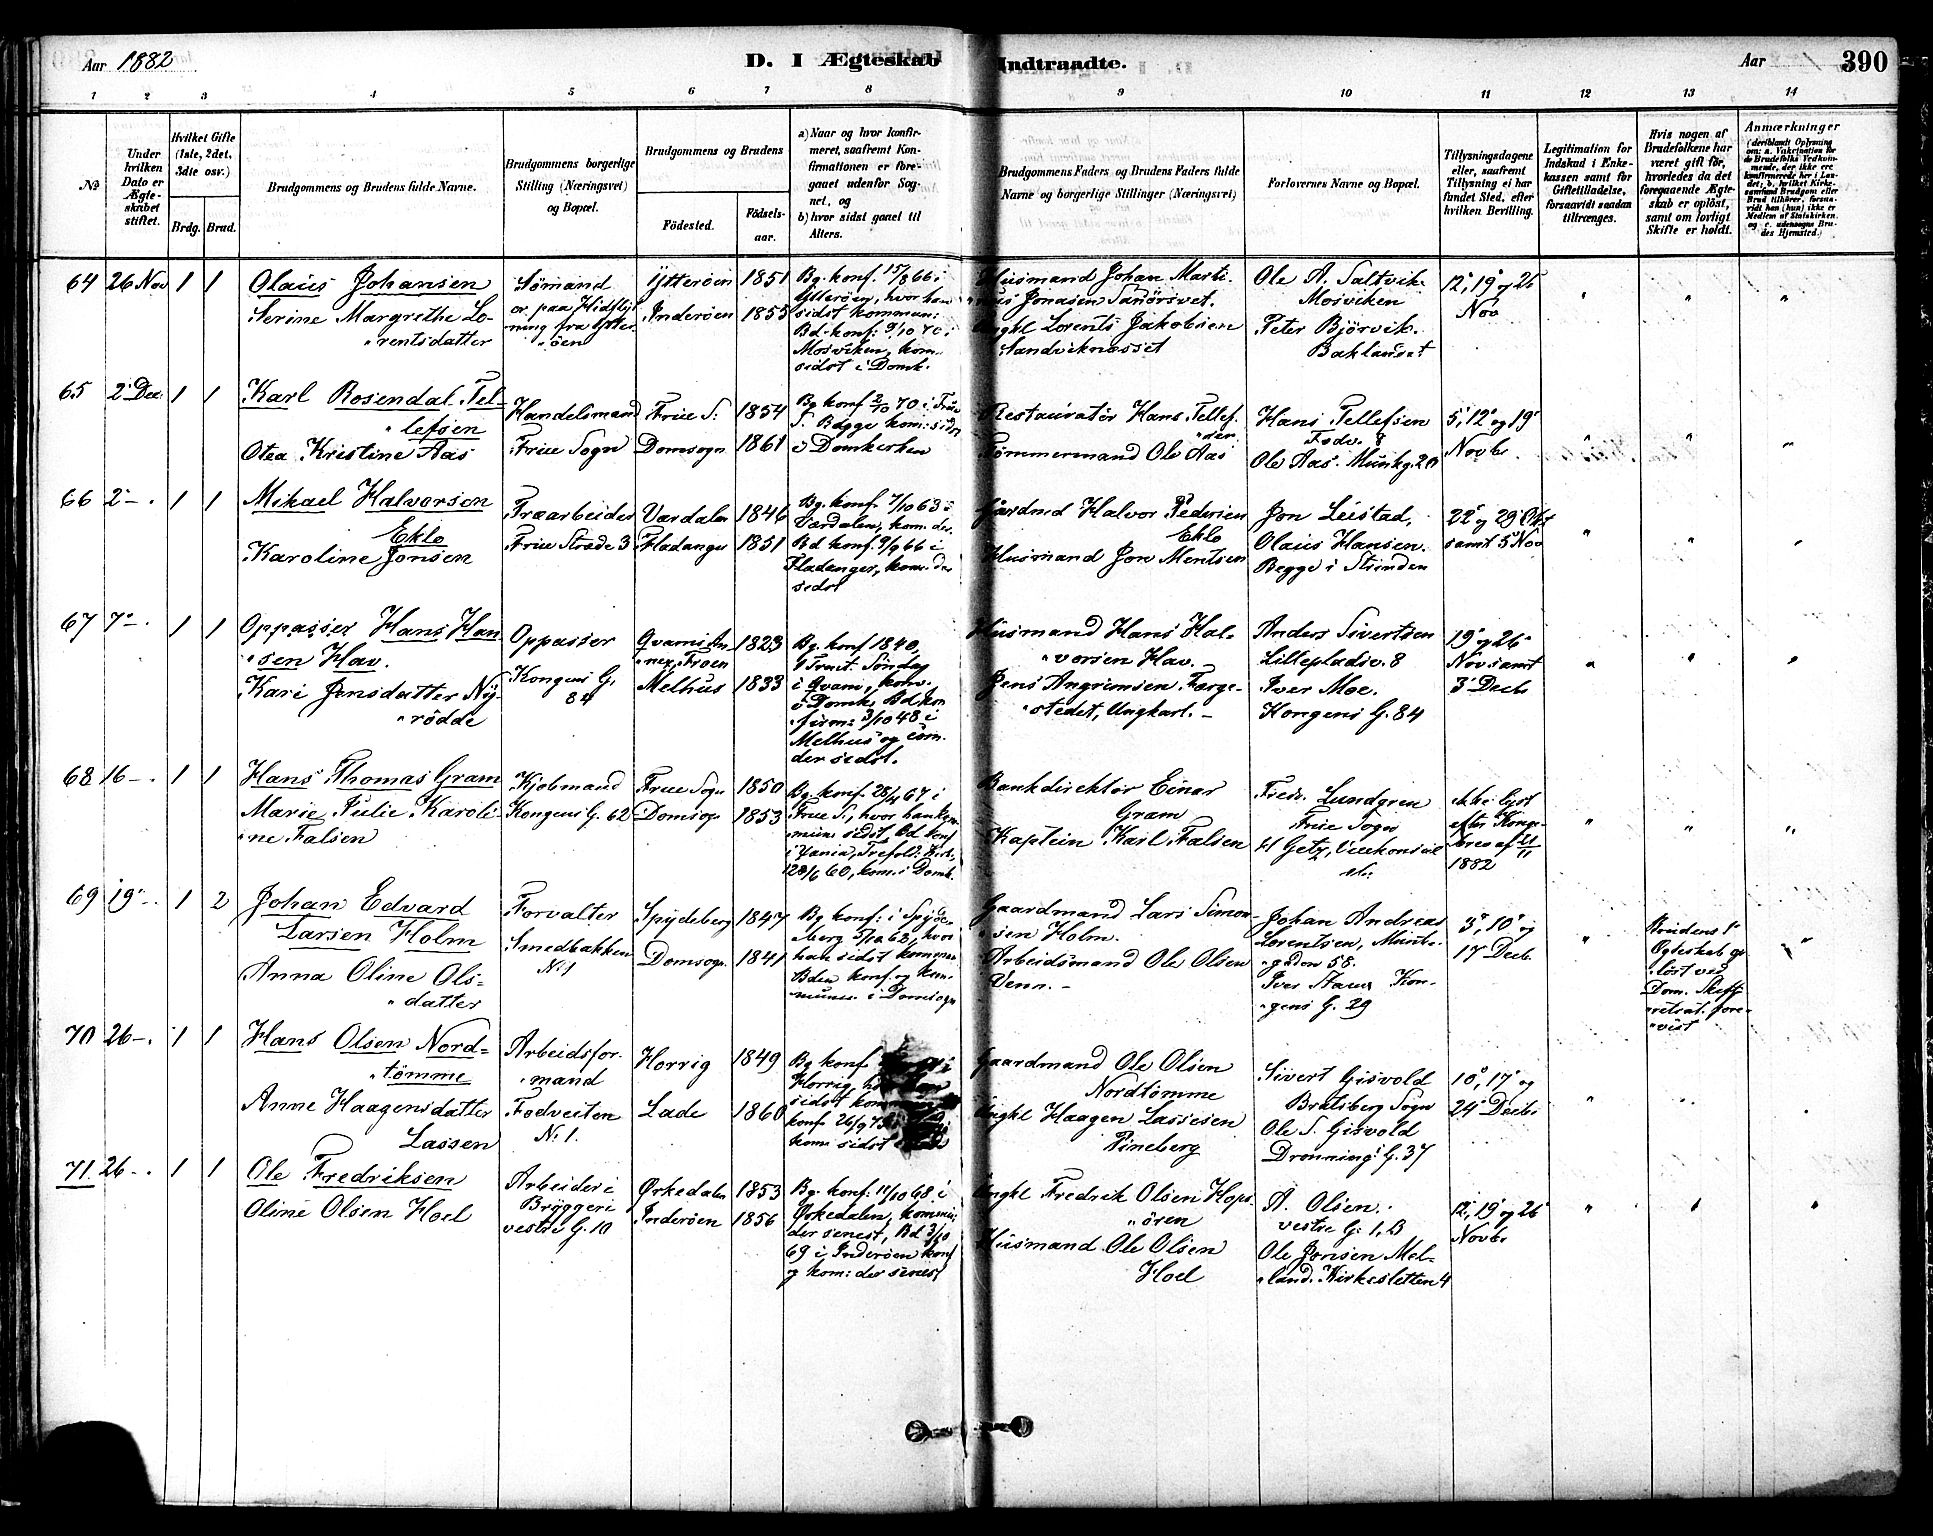 Aar 1882
D. I Ægteskab Indtraadte.
Aar
390
1 2 3 4 5 6 7 8 9 10 11 12 13 14
№
Under hvilken Dato er Ægteskabet stiftet.
Hvilket Gifte (1ste, 2det, 3die osv.)
Brdg. Brud.
Brudgommens og Brudens fulde Navne.
Brudgommens borgerlige Stilling (Næringsvei) og Bopæl.
Brudgommens og Brudens
Fødested.
Fødselsaar.
a) Naar og hvor konfirmeret, saafremt Konfirmationen er foregaaet udenfor Sognet, og
b) hvor sidst gaaet til Alters.
Brudgommens Faders og Brudens Faders fulde Navne og borgerlige Stillinger (Næringsvei)
Forlovernes Navne og Bopæl.
Tillysningsdagene eller, saafremt Tillysning ei har fundet Sted, efter hvilken Bevilling.
Legitimation for Indskud i Enkekassen samt for Giftetilladelse, forsaavidt saadan tiltrænges.
Hvis nogen af Brudefolkene har været gift før, hvorledes da det foregaaende Ægteskab er opløst, samt om lovligt Skifte er holdt.
Anmærkninger (deriblandt Oplysning om: a. Vakcination for de Brudefolks Vedkommende, der ikke ere konfirmerede her i Landet; b. hvilket Kirkesamfund Brudgom eller Brud tilhører, forsaavidt han (hun) ikke er Medlem af Statskirken, og c. udensogns Brudes Hjemsted.)
64 26 Nov 1 1
Olaus Johansen
Serine Margrethe Lo-
"rentsdatter
Sømand
or. paa
ning fra Ytter
"øen
Ytterøen 1851
Inderøen 1855
Bg. konf. 15/8 66 i
Ytterøen, hvor han
sidst kommun:
Bd. konf: 9/10 70 i
Mosviken, kom.
sidst i Domk.
Husmand Johan Marti-
"nus Jonasen Sandørsvet.
Ungkl Lorents Jakobsen
Sandviknesset
Ole A. Saltvik
Mosviken
Peter Bjørvik.
Baklandet
12', 19' og 26'
Nov
65 2' Dec. 1 1
Karl Rosendal Tel-
"lefsen
Otea Kristine Aas
Handelsmand
Frue Sogn
Frue S: 1854
Domsogn 1861
Bg. konf 2/10 70 i Frue
S. Begge kom: sidst
i Domkirken
Restauratør Hans Tellef-
"sen
Tømmermand Ole Aas
Hans Tellefsen
Fodv. 8
Ole Aas. Munkg. 20
5', 12' og 19'
Novbr.
66 2'-. 1 1
Mikael Halvorsen
Eklo
Karoline Jonsen
Træarbeider
Frue Stræde 3
Værdalen 1846
Fladanger 1851
Bg. konf. 7/10 63 i
Værdalen, kom. der.
Bd konf. 9/9 66 i
Fladanger, kom. der
sidst
Gårdmd Halvor Pedersen
Eklo
Husmand Jon Mentsen
Jon Leistad,
Olaus Hansen.
Begge i Strinden
22' og 29' Okt
samt 5' Nov
67 7'-. 1 1
Oppasser Hans Han
"sen Hav.
Kari Jensdatter Ny-
"rødde
Oppasser
Kongens G.
84
Qvams An-
"nex, Froen 1823
Melhus 1833
Bg. konf 1840,
9 Trait. Søndag
i Qvam, kom.
i Domk. Bd. kon
"firm: 3/10 48 i
Melhus og com.
der sidst.
Husmand Hans Hal-
"vorsen Hav. -
Jens Angrimsen Færge-
"stedet, Ungkarl. -
Anders Sivertsen
Lillepladsv. 8
Iver Moe.
Kongens G. 84
19' og 26'
Nov samt
3' Decb.
68 16-. 1 1
Hans Thomas Gram
Marie Julie Karoli-
"ne Falsen
Kjøbmand
Kongens G. 62
Frue Sogn 1850
Domsogn 1853
Bg. konf. 28/4 67 i
Frue S., hvor han kom-
"mun: sidst. Bd. konf
i Trefold: Kirk.
kom. i Domk.
Bankdirektør Einar
Gram
Kaptein Karl Falsen
Fredr. Lundgren
Frue Sogn
H Getz, Vicekonsul
ikke lyst
efter Konge-
1882
69 19'-. 1 2
Johan Edvard
Larsen Holm
Anna Oline Ols-
"datter
Forvalter
Smedbakken
№ 1
Spydeberg 1847
Domsogn 1841
Bg. konf: i Spyde-
"berg 5/10 62, hvor
han sidst kommun
Bden konf. og kom-
mun. i Domsogn
Gaardmand Lars Simon-
"sen Holm.
Arbeidsmand Ole Olsen
Venn. -
Johan Andreas
Lorentsen, Munke-
"gaden 58.
Iver Kon-
"gens G. 29
3', 10' og
17 Decb.
Brudens 1'
Egteskab op
"løst ved
Dom. Skift-
"retsat. fore-
"vist
70 26-. 1 1
Hans Olsen Nord-
"tømme
Anne Haagensdatter
Lassen
Arbeidsfor-
"mand
Fodveiten
№ 1.
Horrig 1849
Lade 1860
Bg. konf
Horrig, hvor han
sidst
konf 26/9 75
kom sidst
Gaardmand Ole Olsen
Nordtømme
Ungkl Haagen Lassesen
Pineberg
Sivert Gisvold
Bratsberg Sogn
Ole S. Gisvold
Dronning: G. 37
10', 17' og
24' Decbr
71. 26-. 1 1
Ole Fredriksen
Oline Olsen Hoel
Arbeider i
Bryggeri
vestre G. 10
Ørkedalen 1853
Inderøen 1856
Bg. konf: 11/10 68 i
Ørkedalen, kommun:
der senest, Bd 3/10
69 i Inderøen konf
og kom: der senest
Ungkl Fredrik Olsen Hops-
"ören
Husmand Ole Olsen
Hoel
A. Olsen.
vestre G: 1, B
Ole Jonsen Mel-
"land. Kirkesletten 4
12', 19' og 26'
Novbr